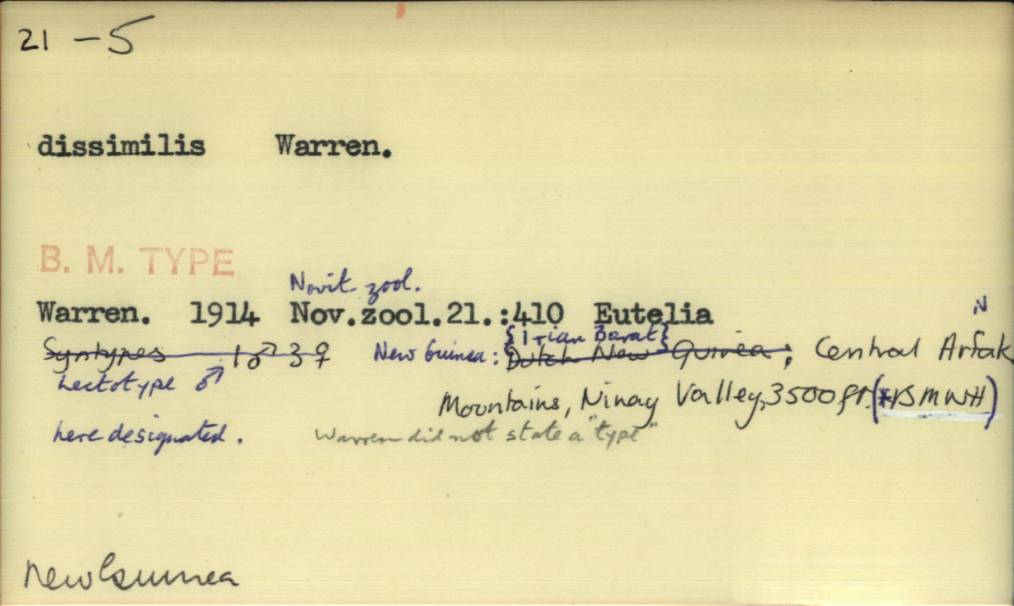 21 - 5
dissimilis Warren.
B. M. TYPE
Novit. zool.
Warren. 1914 Nov.zool.21.:410 Eutelia
N
{Irian Barat}
Syntypes 1♂ 3♀ New Guinea: Dutch New Guinea; Central Arfak
Lectotype ♂
Mountains, Ninay Valley, 3500 ft. (*BMNH)
here designated. Warren did not state a "type"
New Guinea